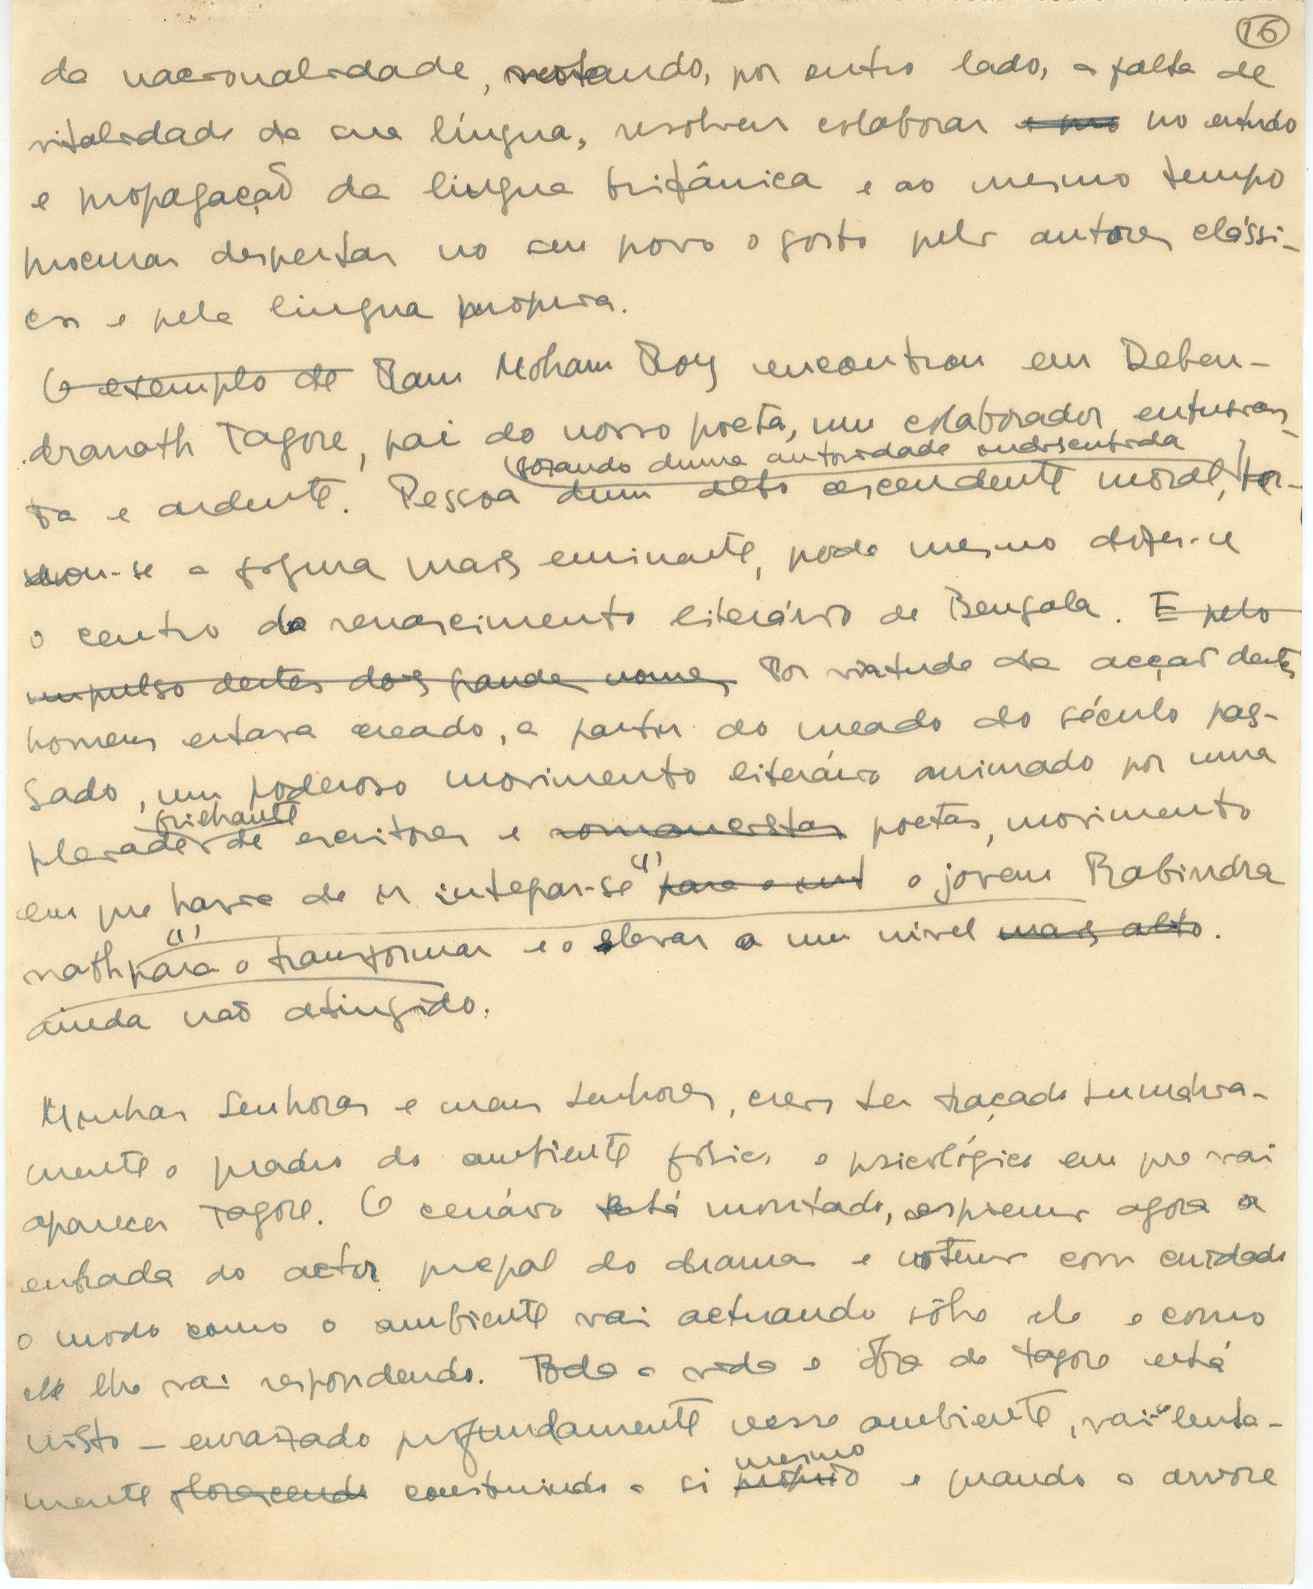 16
da nacionalidade, notando, por outro lado, a falta de
vitalidade da sua língua, resolveu colaborar no estudo
e propagação da lingua britânica e ao mesmo tempo
procurar despertar no seu povo o gosto pelos autores clássi-
cos e pela lingua propria.
O exemplo de Ram Moham Roy encontrou em Deben-
dranath Tagore, pai do nosso poeta, um colaborador entusias-
gozando duma autoridade indiscutida
ta e ardente. Pessoa dum alto ascendente moral, tor-
nou-se a figura mais eminente, pode mesmo dizer-se
o centro do renascimento literário de Bengala. E pelo
impulso destes dois grandes nomes Por virtude da acção destes
homens estava creado, a partir do meado do século pas-
sado, um poderoso movimento literário animado por uma
brilhante
pleiade de escritores e romancistas poetas, movimento
em que havia de ir integrar-se (1) para o o jovem Rabindra
nath (1) para o transformar e o elevar a um nivel mais alto.
ainda não atingido.
Minhas Senhoras e meus senhores, creio ter traçado sumária-
mente o quadro do ambiente físico e psicológico em que vai
aparecer Tagore. O cenário está montado, esperemos agora a
entrada do actor pcpal do drama e notemos com cuidado
o modo como o ambiente vai actuando sôbre ele e como
ele lhe vai respondendo. Toda a vida e obra de Tagore está
nisto – enraizado profundamente nesse ambiente, vai lenta-
mesmo
mente florescendo construindo a si próprio e quando a arvore